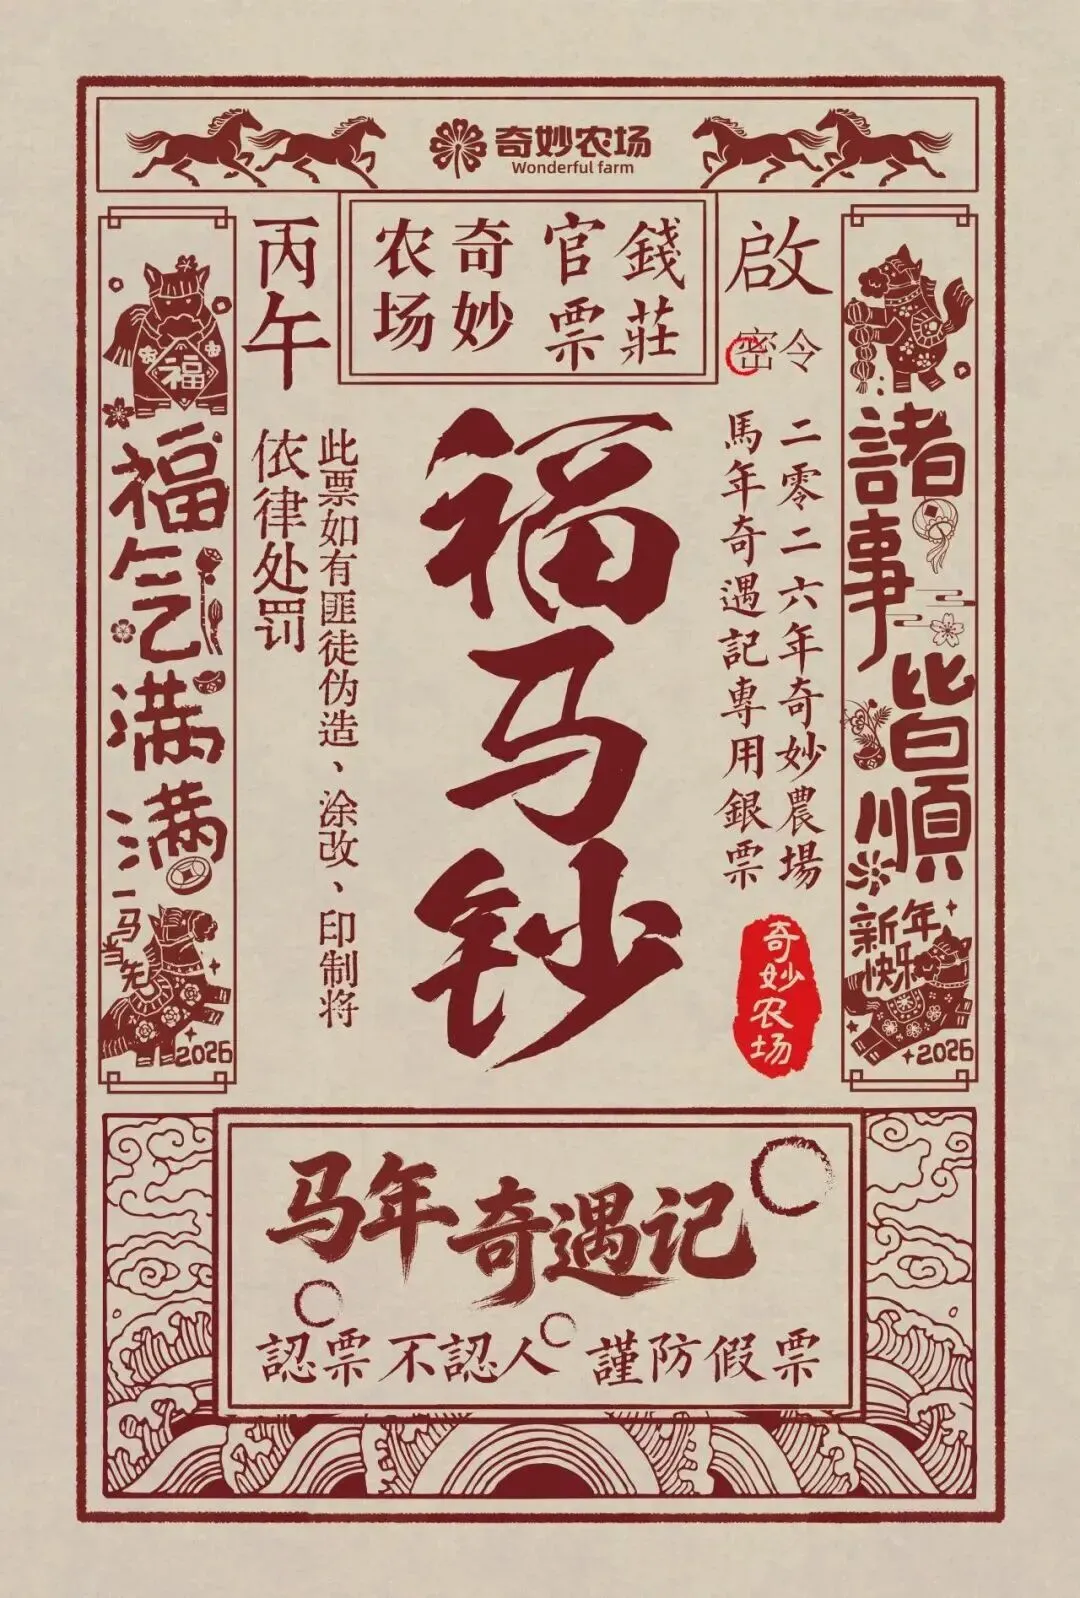 奇妙农场
Wonderful farm
錢莊
官票
奇妙
农场
啟
密令
丙午
諸事皆順
新年
快乐
2026
二零二六年奇妙農場
馬年奇遇記專用銀票
奇妙农场
福马钞
此票如有匪徒伪造、涂改、印制将
依律处罚
福
福气满满
一马当先
2026
马年奇遇记
認票不認人 謹防假票